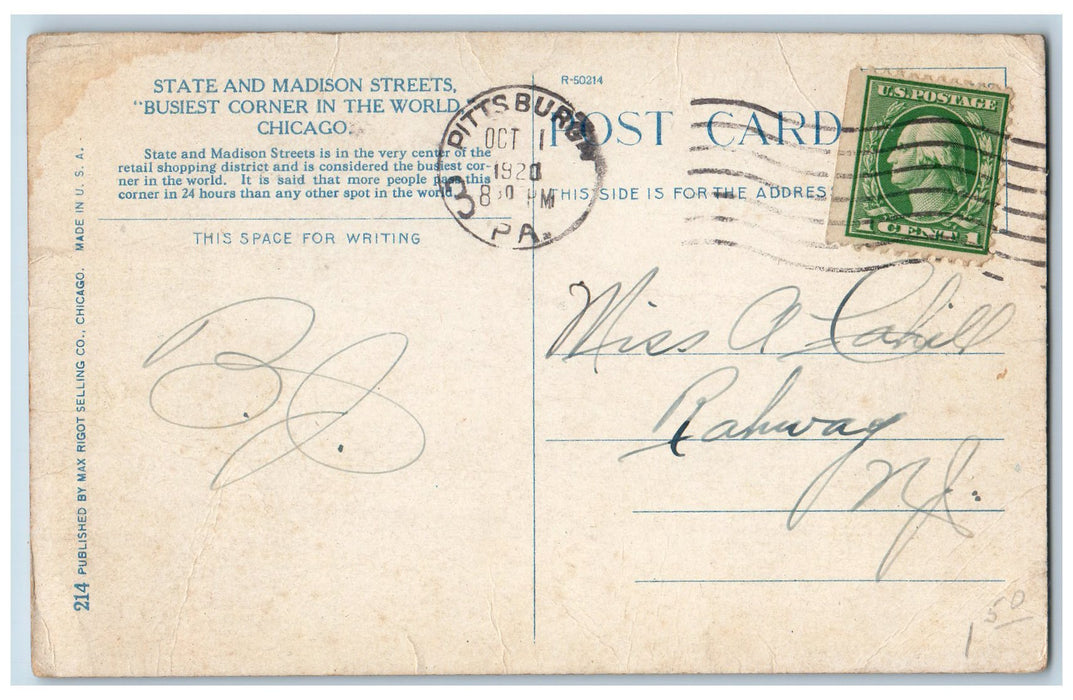 STATE AND MADISON STREETS,
"BUSIEST CORNER IN THE WORLD,"
CHICAGO.
State and Madison Streets is in the very center of the
retail shopping district and is considered the busiest cor-
ner in the world. It is said that more people pass this
corner in 24 hours than any other spot in the world.
THIS SPACE FOR WRITING
B. J.
214 PUBLISHED BY MAX RIGOT SELLING CO., CHICAGO. MADE IN U. S. A.
R-50214
POST CARD
THIS SIDE IS FOR THE ADDRES
PITTSBURGH
OCT 1
1920
8 30 PM
PA.
3
U.S. POSTAGE
1 CENT 1
Miss A Cahill
Rahway
N.J.
1 50